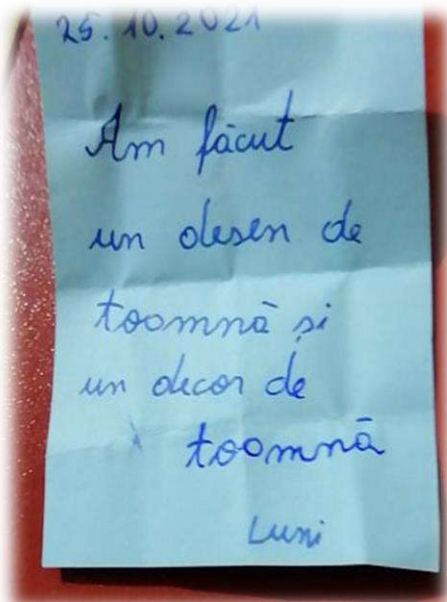 25.10.2021
Am făcut
un desen de
toamnă și
un decor de
toamnă
Luni